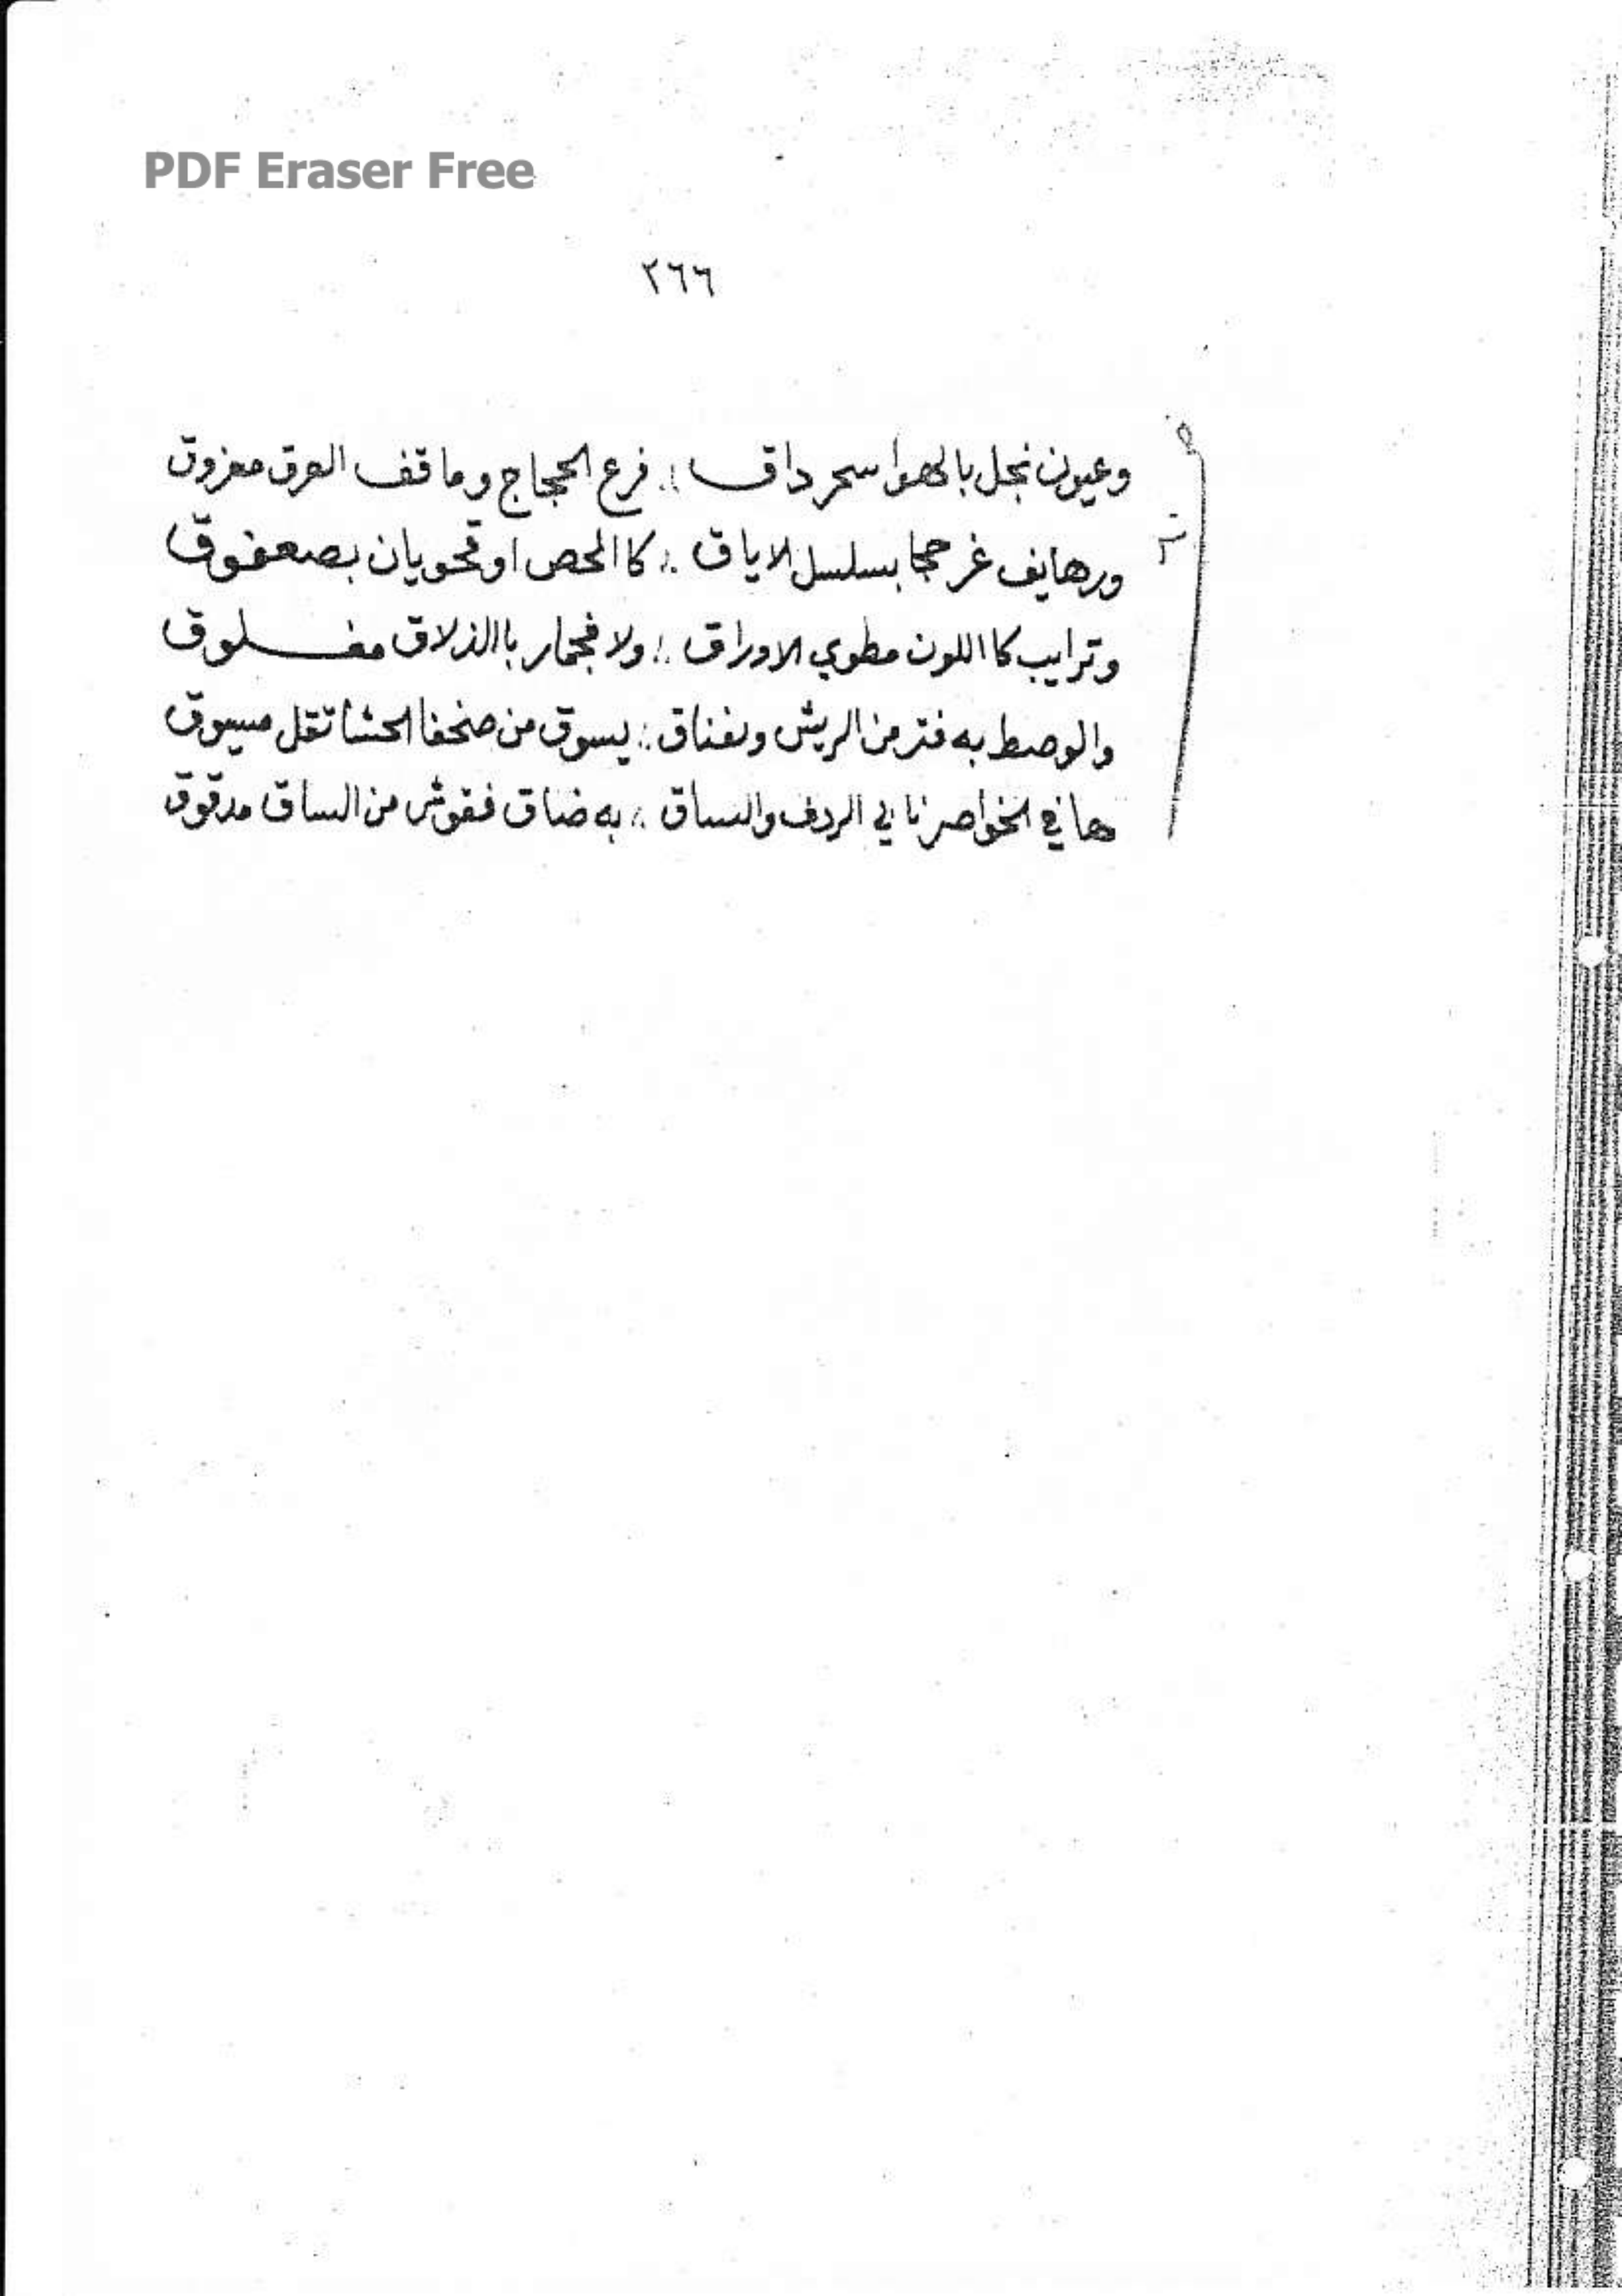 PDF Eraser Free
٢٦٦
وعيون نجل بالهوا سحر داق ؛. فرع الحجاج وماقف العرق معزوق
ورهايف غر حجا بسلسل الاياق ؛. كا المحص اوقحويان بصعفوق
وترايب كا اللون مطوي الاوراق ؛. ولا فجمار باالذلاق مفلوق
والوصط به فتر من الريش ونفناق ؛. يسوق من ضخفا الحشا تقل ميسوق
هافي الخواصر نابي الردف والساق ؛. به ضاق فقوش من الساق مدقوق